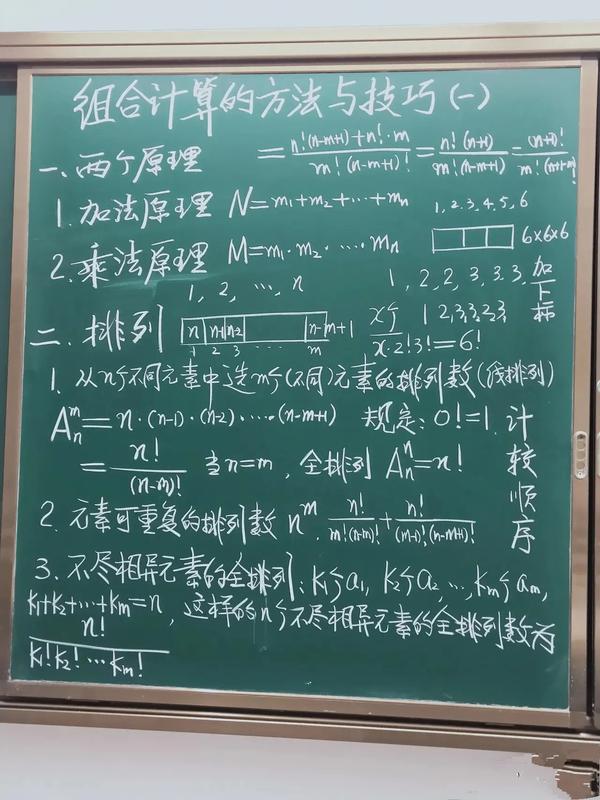 组合计算的方法与技巧(一)
一、两个原理
= n!(n-m+1)+n!·m / m!(n-m+1)! = n!(n+1) / m!(n-m+1)! = (n+1)! / m!(n+1-m)!
1. 加法原理 N=m₁+m₂+…+mₙ
1, 2, 3, 4, 5, 6
6×6×6
2. 乘法原理 M=m₁·m₂·…·mₙ
1, 2, 2, 3, 3, 3, 加下标
1, 2, …, n
二、排列
n n-1 n-2 n-m+1
1 2 3 m
x个 1 2,3,3,2,3
x·2!3!=6!
1. 从n个不同元素中选m个(不同)元素的排列数(线排列)
Aₙᵐ=n·(n-1)·(n-2)·…·(n-m+1) 规定: 0!=1.
计较顺序
= n! / (n-m)! 当n=m, 全排列 Aₙⁿ=n!
2. 元素可重复的排列数 nᵐ.
n! / m!(n-m)! + n! / (m-1)!(n-m+1)!
3. 不尽相异元素的全排列: k₁个a₁, k₂个a₂, …, kₘ个aₘ,
k₁+k₂+…+kₘ=n, 这样的n个不尽相异元素的全排列数为
n! / k₁!k₂!…kₘ!